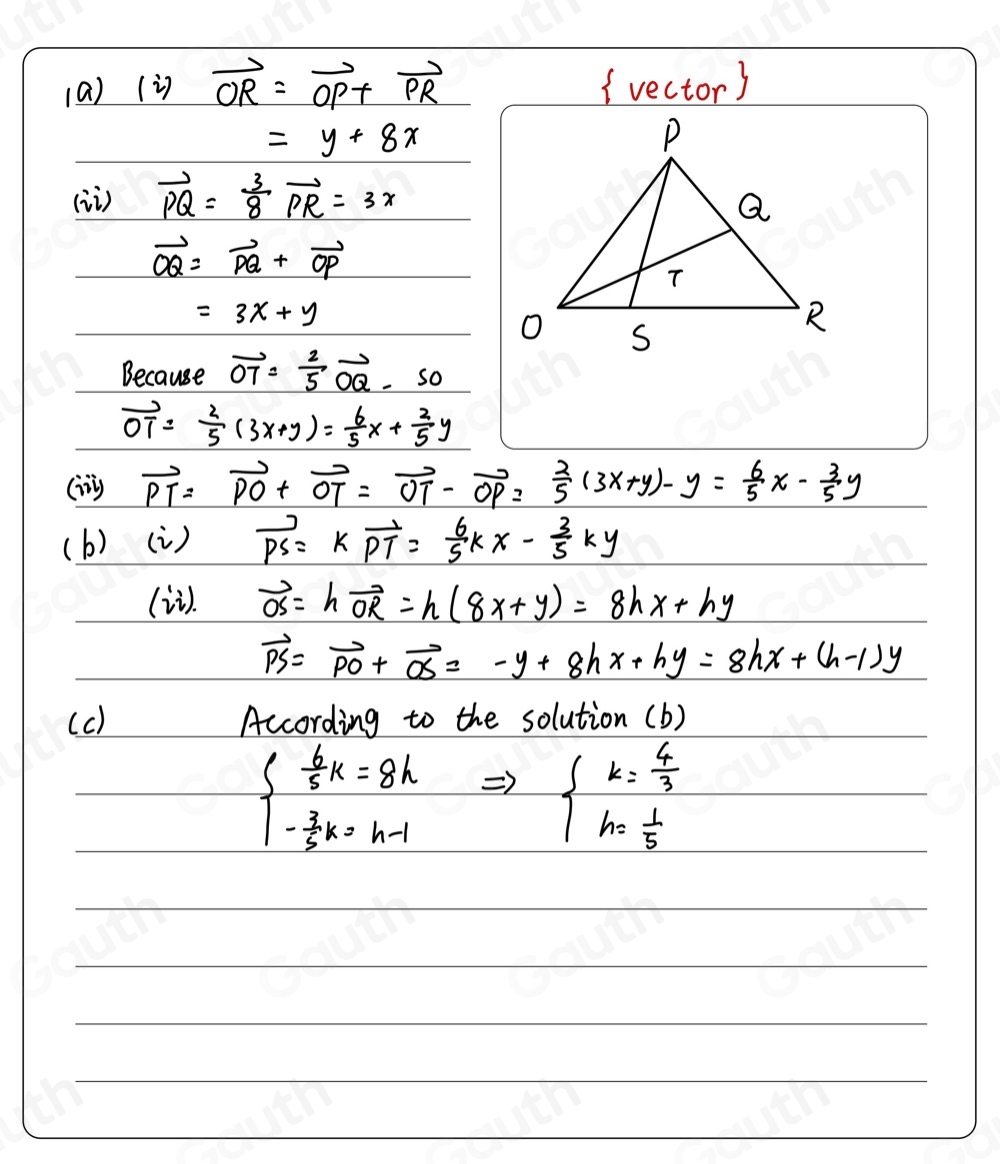 (a) (i) OR = OP + PR
= y + 8x
{ vector }
P
Q
T
O
S
R
(ii) PQ = 3/8 PR = 3x
OQ = PQ + OP
= 3x + y
Because OT = 2/5 OQ - so
OT = 2/5 (3x+y) = 6/5 x + 2/5 y
(iii) PT = PO + OT = OT - OP = 2/5 (3x+y) - y = 6/5 x - 3/5 y
(b) (i) PS = k PT = 6/5 k x - 3/5 k y
(ii). OS = h OR = h(8x+y) = 8hx + hy
PS = PO + OS = -y + 8hx + hy = 8hx + (h-1)y
(c) According to the solution (b)
{ 6/5 k = 8h => { k = 4/3
- 3/5 k = h-1 h = 1/5
Gauth